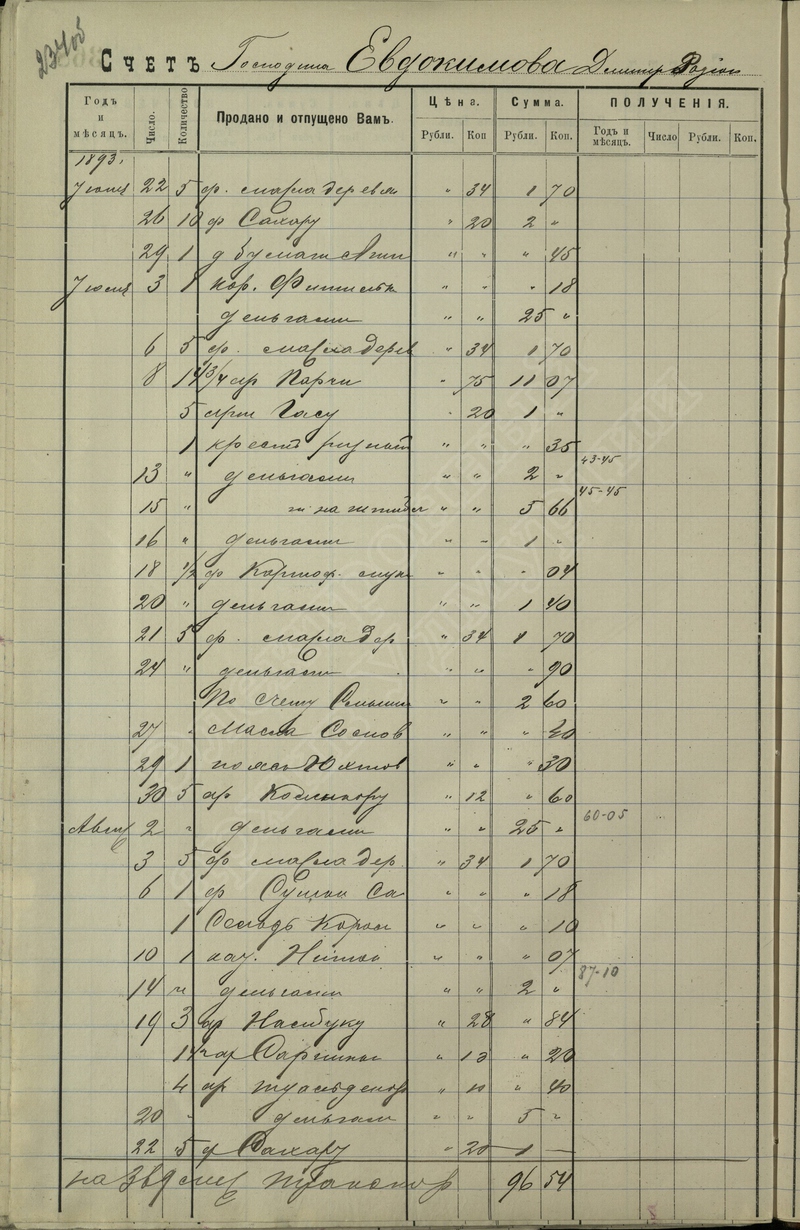 23405
Счетъ Господина Евдокимова Дмитр
Годъ и мѣсяцъ. Число. Количество Продано и отпущено Вамъ. Цѣна. Рубли. Коп Сумма. Рубли. Коп. ПОЛУЧЕНІЯ. Годъ и мѣсяцъ. Число Рубли. Коп.
1893.
Іюня 22 5 ф. масла дерев " 34 1 70
26 10 ф Сахару " 20 2 "
29 1 д бумаги " " " 45
Іюля 3 1 кор. Фитиль " " " 18
деньгами " " 25 "
6 5 ф. масла дерев " 34 1 70
8 14 3/4 ар Парчи " 75 11 07
5 арш Гасу " 20 1 "
1 крестъ " " " 35
43-45
13 " деньгами " " 2 "
45-45
15 " на " " 5 66
16 " деньгами " " 1 "
18 1/2 ф Картоф. муки " " " 04
20 " деньгами " " 1 40
21 5 ф. масла дер " 34 1 70
24 " деньгами " " " 90
По счету " " 2 60
27 " Масла Соснов " " " 20
29 1 поясъ " " " 30
30 5 ар Коленкору " 12 " 60
60-05
Авгу 2 " деньгами " " 25 "
3 5 ф масла дер. " 34 1 70
6 1 ф Сушки Са " " " 18
1 Сельдь Корол " " " 10
10 1 " " " 07
87-10
14 " деньгами " " 2 "
19 3 ар " 28 " 84
ар Сарпинки " " 20
4 ар " 10 " 40
20 " деньгам " " 5 "
22 5 ф Сахару " 20 1 —
на 369 Транспор 96 54